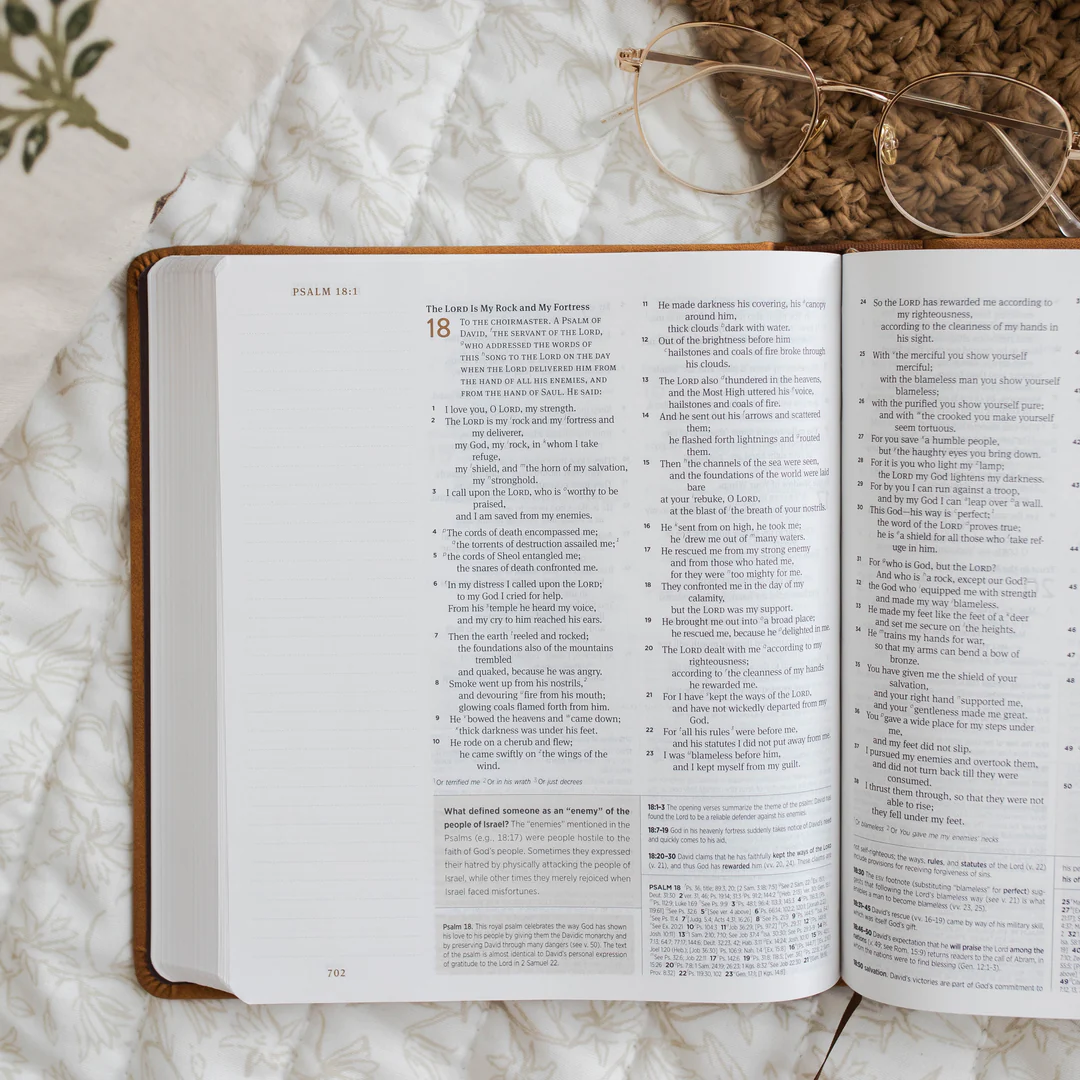 PSALM 18:1
The LORD Is My Rock and My Fortress
18 TO THE CHOIRMASTER. A PSALM OF
DAVID, THE SERVANT OF THE LORD,
WHO ADDRESSED THE WORDS OF
THIS SONG TO THE LORD ON THE DAY
WHEN THE LORD DELIVERED HIM FROM
THE HAND OF ALL HIS ENEMIES, AND
FROM THE HAND OF SAUL. HE SAID:
1 I love you, O LORD, my strength.
2 The LORD is my rock and my fortress and
my deliverer,
my God, my rock, in whom I take
refuge,
my shield, and the horn of my salvation,
my stronghold.
3 I call upon the LORD, who is worthy to be
praised,
and I am saved from my enemies.
4 The cords of death encompassed me;
the torrents of destruction assailed me;
5 the cords of Sheol entangled me;
the snares of death confronted me.
6 In my distress I called upon the LORD;
to my God I cried for help.
From his temple he heard my voice,
and my cry to him reached his ears.
7 Then the earth reeled and rocked;
the foundations also of the mountains
trembled
and quaked, because he was angry.
8 Smoke went up from his nostrils,
and devouring fire from his mouth;
glowing coals flamed forth from him.
9 He bowed the heavens and came down;
thick darkness was under his feet.
10 He rode on a cherub and flew;
he came swiftly on the wings of the
wind.
1 Or terrified me 2 Or in his wrath 3 Or just decrees
What defined someone as an “enemy” of the
people of Israel? The “enemies” mentioned in the
Psalms (e.g., 18:17) were people hostile to the
faith of God’s people. Sometimes they expressed
their hatred by physically attacking the people of
Israel, while other times they merely rejoiced when
Israel faced misfortunes.
Psalm 18. This royal psalm celebrates the way God has shown
his love to his people by giving them the Davidic monarchy and
by preserving David through many dangers (see v. 50). The text
of the psalm is almost identical to David’s personal expression
of gratitude to the Lord in 2 Samuel 22.
702
11 He made darkness his covering, his canopy
around him,
thick clouds dark with water.
12 Out of the brightness before him
hailstones and coals of fire broke through
his clouds.
13 The LORD also thundered in the heavens,
and the Most High uttered his voice,
hailstones and coals of fire.
14 And he sent out his arrows and scattered
them;
he flashed forth lightnings and routed
them.
15 Then the channels of the sea were seen,
and the foundations of the world were laid
bare
at your rebuke, O LORD,
at the blast of the breath of your nostrils.
16 He sent from on high, he took me;
he drew me out of many waters.
17 He rescued me from my strong enemy
and from those who hated me,
for they were too mighty for me.
18 They confronted me in the day of my
calamity,
but the LORD was my support.
19 He brought me out into a broad place;
he rescued me, because he delighted in me.
20 The LORD dealt with me according to my
righteousness;
according to the cleanness of my hands
he rewarded me.
21 For I have kept the ways of the LORD,
and have not wickedly departed from my
God.
22 For all his rules were before me,
and his statutes I did not put away from me.
23 I was blameless before him,
and I kept myself from my guilt.
18:1–3 The opening verses summarize the theme of the psalm: David has
found the Lord to be a reliable defender against his enemies.
18:7–19 God in his heavenly fortress suddenly takes notice of David’s need
and quickly comes to his aid,
18:20–30 David claims that he has faithfully kept the ways of the LORD
(v. 21), and thus God has rewarded him (vv. 20, 24). These claims are
PSALM 18
24 So the LORD has rewarded me according to
my righteousness,
according to the cleanness of my hands in
his sight.
25 With the merciful you show yourself
merciful;
with the blameless man you show yourself
blameless;
26 with the purified you show yourself pure;
and with the crooked you make yourself
seem tortuous.
27 For you save a humble people,
but the haughty eyes you bring down.
28 For it is you who light my lamp;
the LORD my God lightens my darkness.
29 For by you I can run against a troop,
and by my God I can leap over a wall.
30 This God—his way is perfect;
the word of the LORD proves true;
he is a shield for all those who take ref-
uge in him.
31 For who is God, but the LORD?
And who is a rock, except our God?—
32 the God who equipped me with strength
and made my way blameless.
33 He made my feet like the feet of a deer
and set me secure on the heights.
34 He trains my hands for war,
so that my arms can bend a bow of
bronze.
35 You have given me the shield of your
salvation,
and your right hand supported me,
and your gentleness made me great.
36 You gave a wide place for my steps under
me,
and my feet did not slip.
37 I pursued my enemies and overtook them,
and did not turn back till they were
consumed.
38 I thrust them through, so that they were not
able to rise;
they fell under my feet.
1 Or blameless 2 Or You gave me my enemies' necks
not self-righteous; the ways, rules, and statutes of the Lord (v. 22)
include provisions for receiving forgiveness of sins.
18:30 The ESV footnote (substituting “blameless” for perfect) sug-
gests that following the Lord’s blameless way (see v. 21) is what
enables a man to become blameless (vv. 23, 25).
18:31–45 David’s rescue (vv. 16–19) came by way of his military skill,
which was itself God’s gift.
18:46–50 David’s expectation that he will praise the Lord among the
nations (v. 49; see Rom. 15:9) returns readers to the call of Abram, in
whom the nations were to find blessing (Gen. 12:1–3).
18:50 salvation. David’s victories are part of God’s commitment to
45
46
47
48
49
50